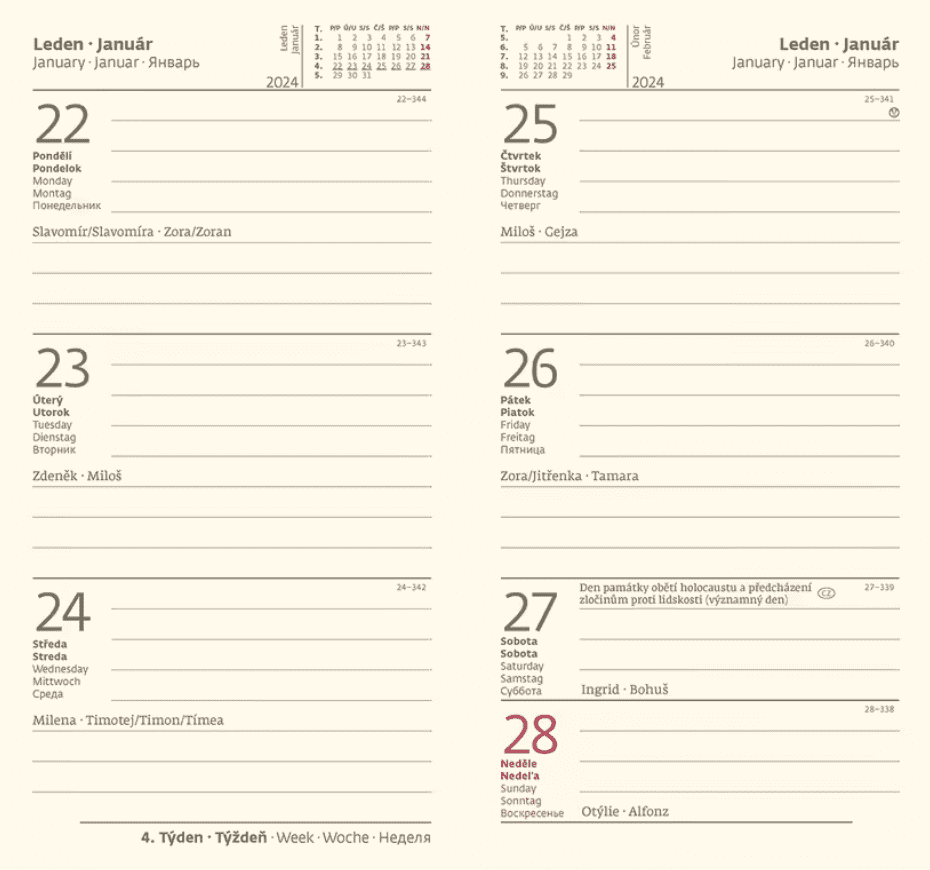 Leden · Január
January · Januar · Январь
Leden
Január
2024
T. P/P Ú/U S/S Č/Š P/P S/S N/N
1. 1 2 3 4 5 6 7
2. 8 9 10 11 12 13 14
3. 15 16 17 18 19 20 21
4. 22 23 24 25 26 27 28
5. 29 30 31
22
22–344
Pondělí
Pondelok
Monday
Montag
Понедельник
Slavomír/Slavomíra · Zora/Zoran
23
23–343
Úterý
Utorok
Tuesday
Dienstag
Вторник
Zdeněk · Miloš
24
24–342
Středa
Streda
Wednesday
Mittwoch
Среда
Milena · Timotej/Timon/Tímea
4. Týden · Týždeň · Week · Woche · Неделя
T. P/P Ú/U S/S Č/Š P/P S/S N/N
5. 1 2 3 4
6. 5 6 7 8 9 10 11
7. 12 13 14 15 16 17 18
8. 19 20 21 22 23 24 25
9. 26 27 28 29
Únor
Február
2024
Leden · Január
January · Januar · Январь
25
25–341
Čtvrtek
Štvrtok
Thursday
Donnerstag
Четверг
Miloš · Gejza
26
26–340
Pátek
Piatok
Friday
Freitag
Пятница
Zora/Jitřenka · Tamara
27
Den památky obětí holocaustu a předcházení
zločinům proti lidskosti (významný den)
CZ
27–339
Sobota
Sobota
Saturday
Samstag
Суббота
Ingrid · Bohuš
28
28–338
Neděle
Nedeľa
Sunday
Sonntag
Воскресенье
Otýlie · Alfonz